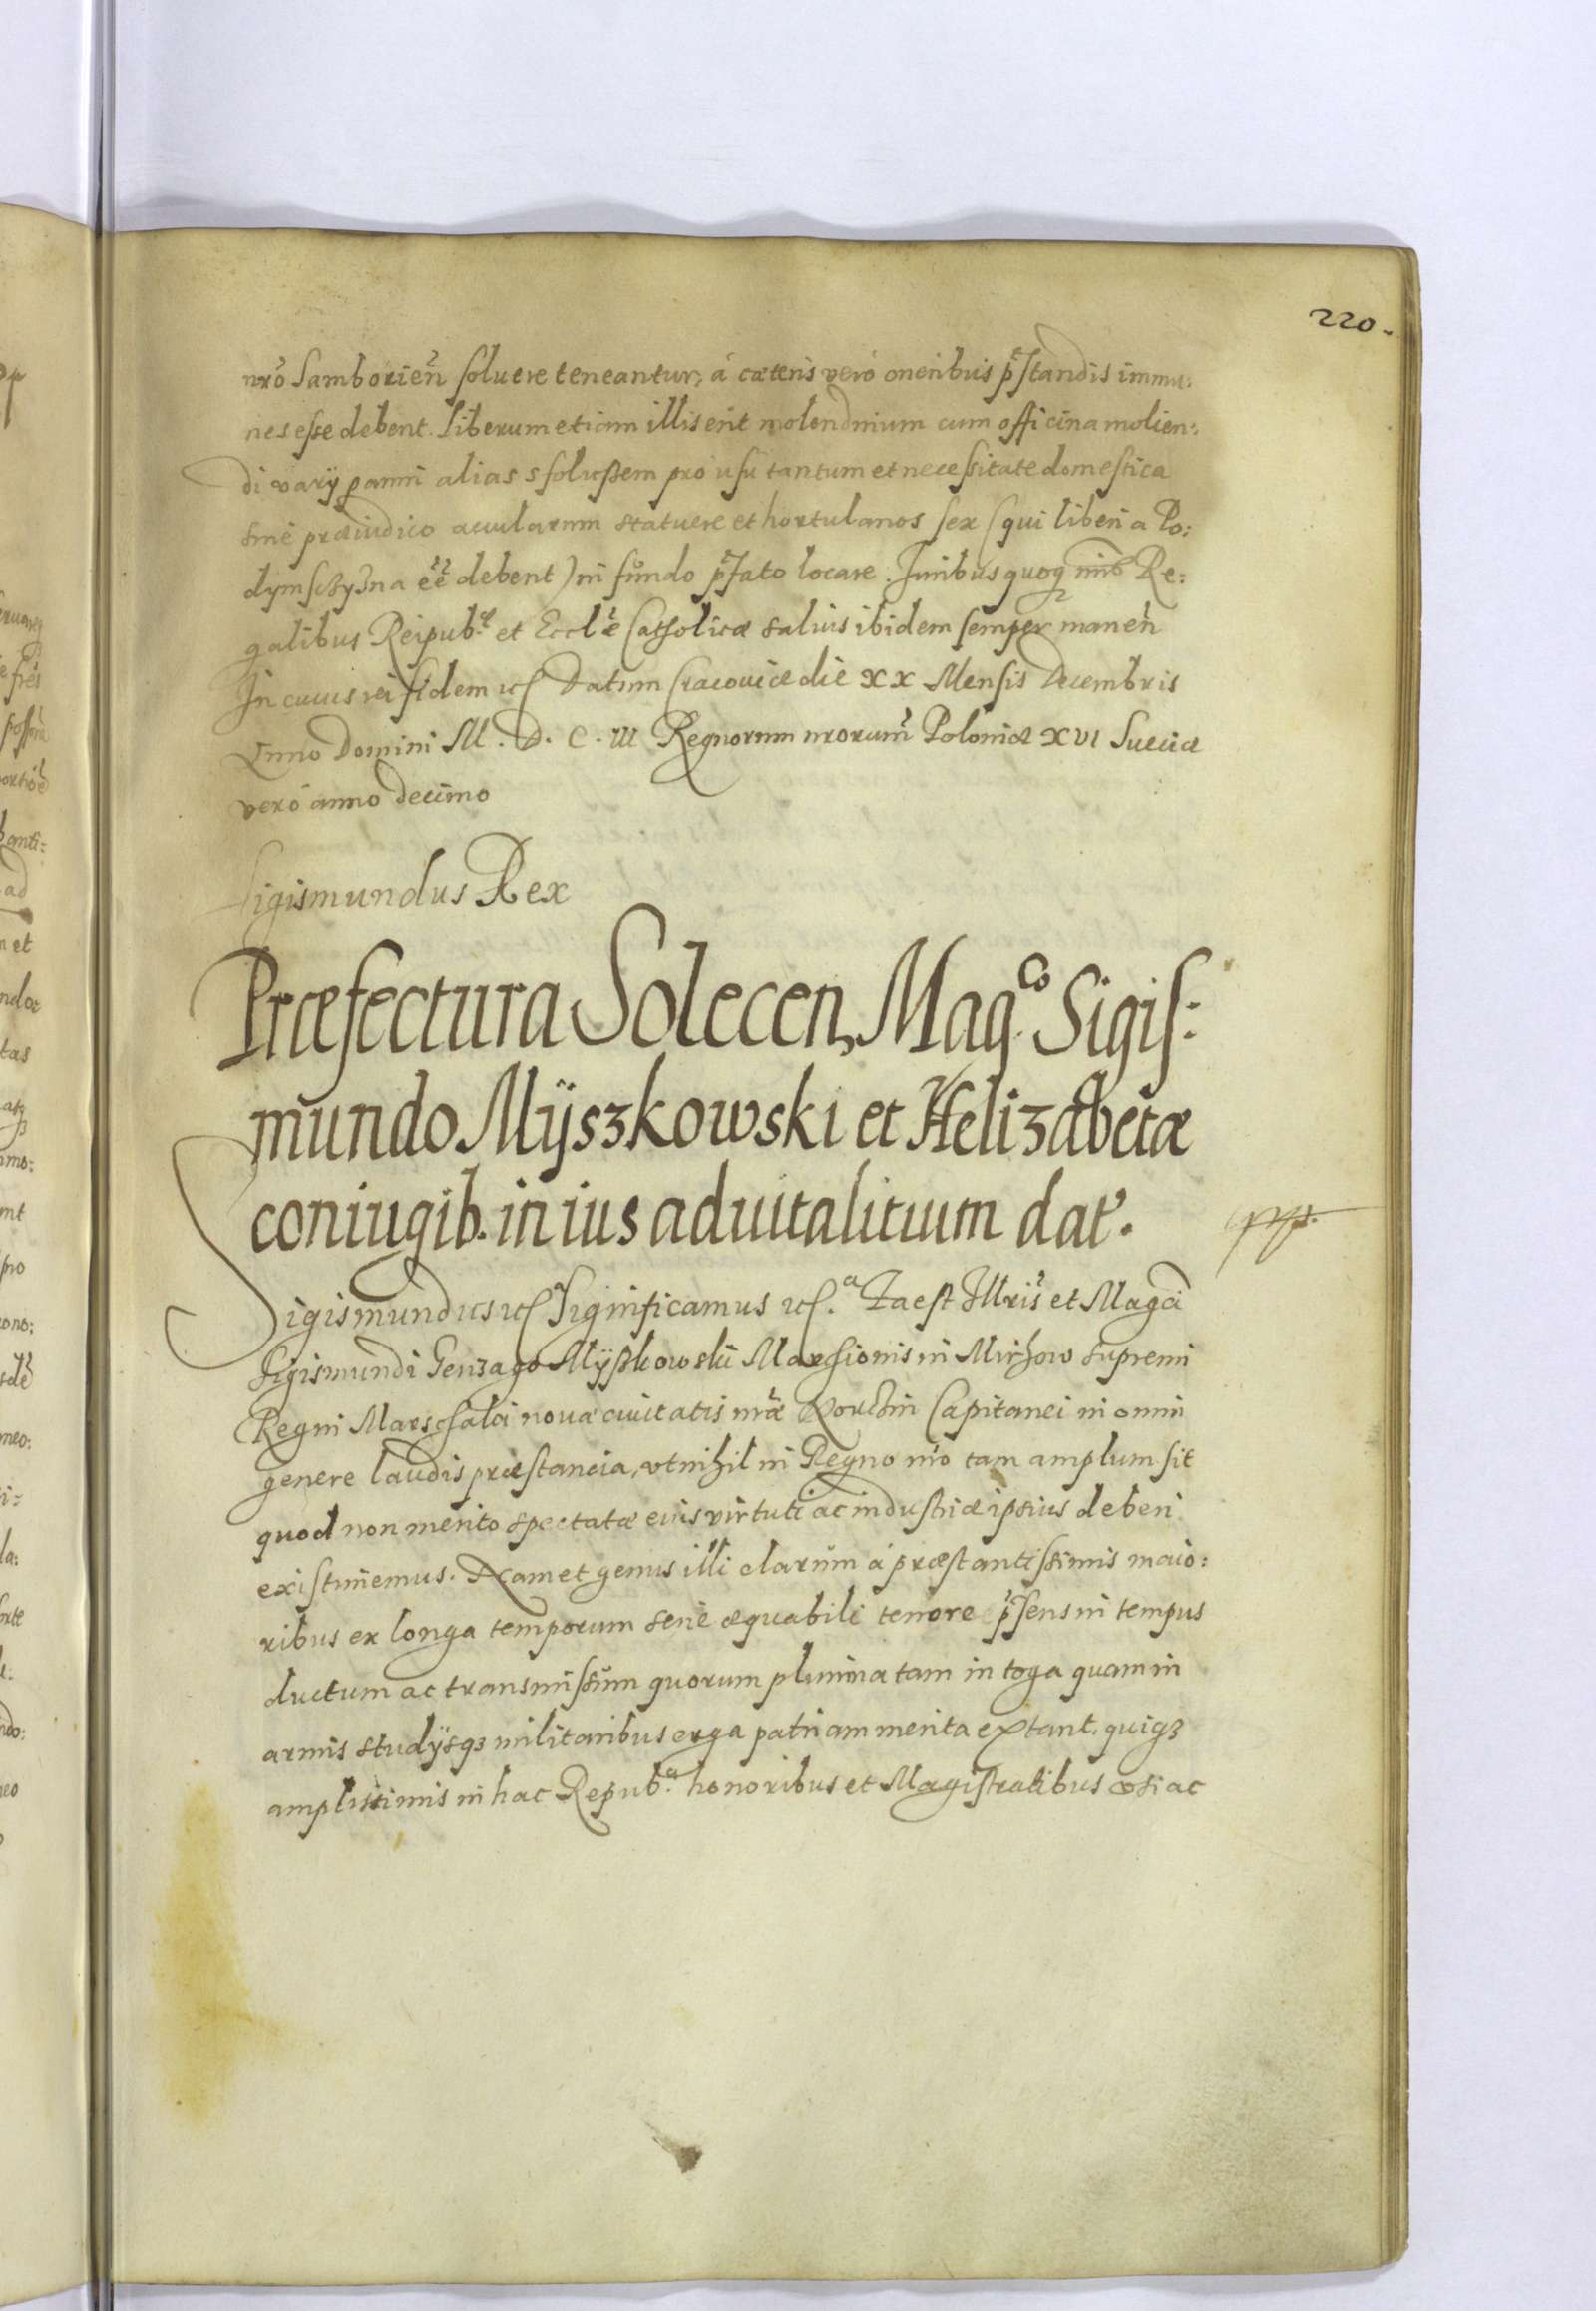 220.
nrõ Samborieñ soluere teneantur, á cæteris veró oneribus p̃standis immu:
nes esse debent. Liberum etiam illis erit molendinum cum officina molien:
di varÿ panni alias s foluszem pro usu tantum et necessitate domestica
sine præiudico acularum statuere et hortulanos sex (qui liberi a Po:
dymschyzna eẽ debent) in fundo p̃fato locare. Iuribus quoq nris Re:
galibus Reipub.æ et Eccłẽ Catholicæ saluis ibidem semper maneñ
In cuius rei fidem etc Datum Cracouiæ die XX Mensis Decembris
Anno Domini M. D. C. III Regnorum nrorum Poloniæ XVI Sueciæ
veró anno decimo
Sigismundus Rex
Præfectura Solecen, Mag.co Sigis:
mundo Mÿszkowski et Helizabetæ
coniugib. in ius aduitalitium dat.
Sigismundus etc Significamus etc.a Ea est Illris et Magci
Sigismundi Genzago Mÿszkowskii Marchionis in Mirhow supremi
Regni Marschalci nouæ ciuitatis nræ Korchin Capitanei in omni
genere laudis præstancia, vt nihil in Regno nro tam amplum sit
quod non merito spectatæ eius virtuti ac industriæ ipsius deberi
existimemus. Nam et genus illi clarum á præstantissimis maio:
ribus ex longa temporum serie æquabili tenore p̃sens in tempus
ductum ac transmissum quorum plurima tam in toga quam in
armis studÿsqz militaribus erga patriam merita extant. quiqz
amplissimis in hac Repub.ca honoribus et Magistratibus vsi ac